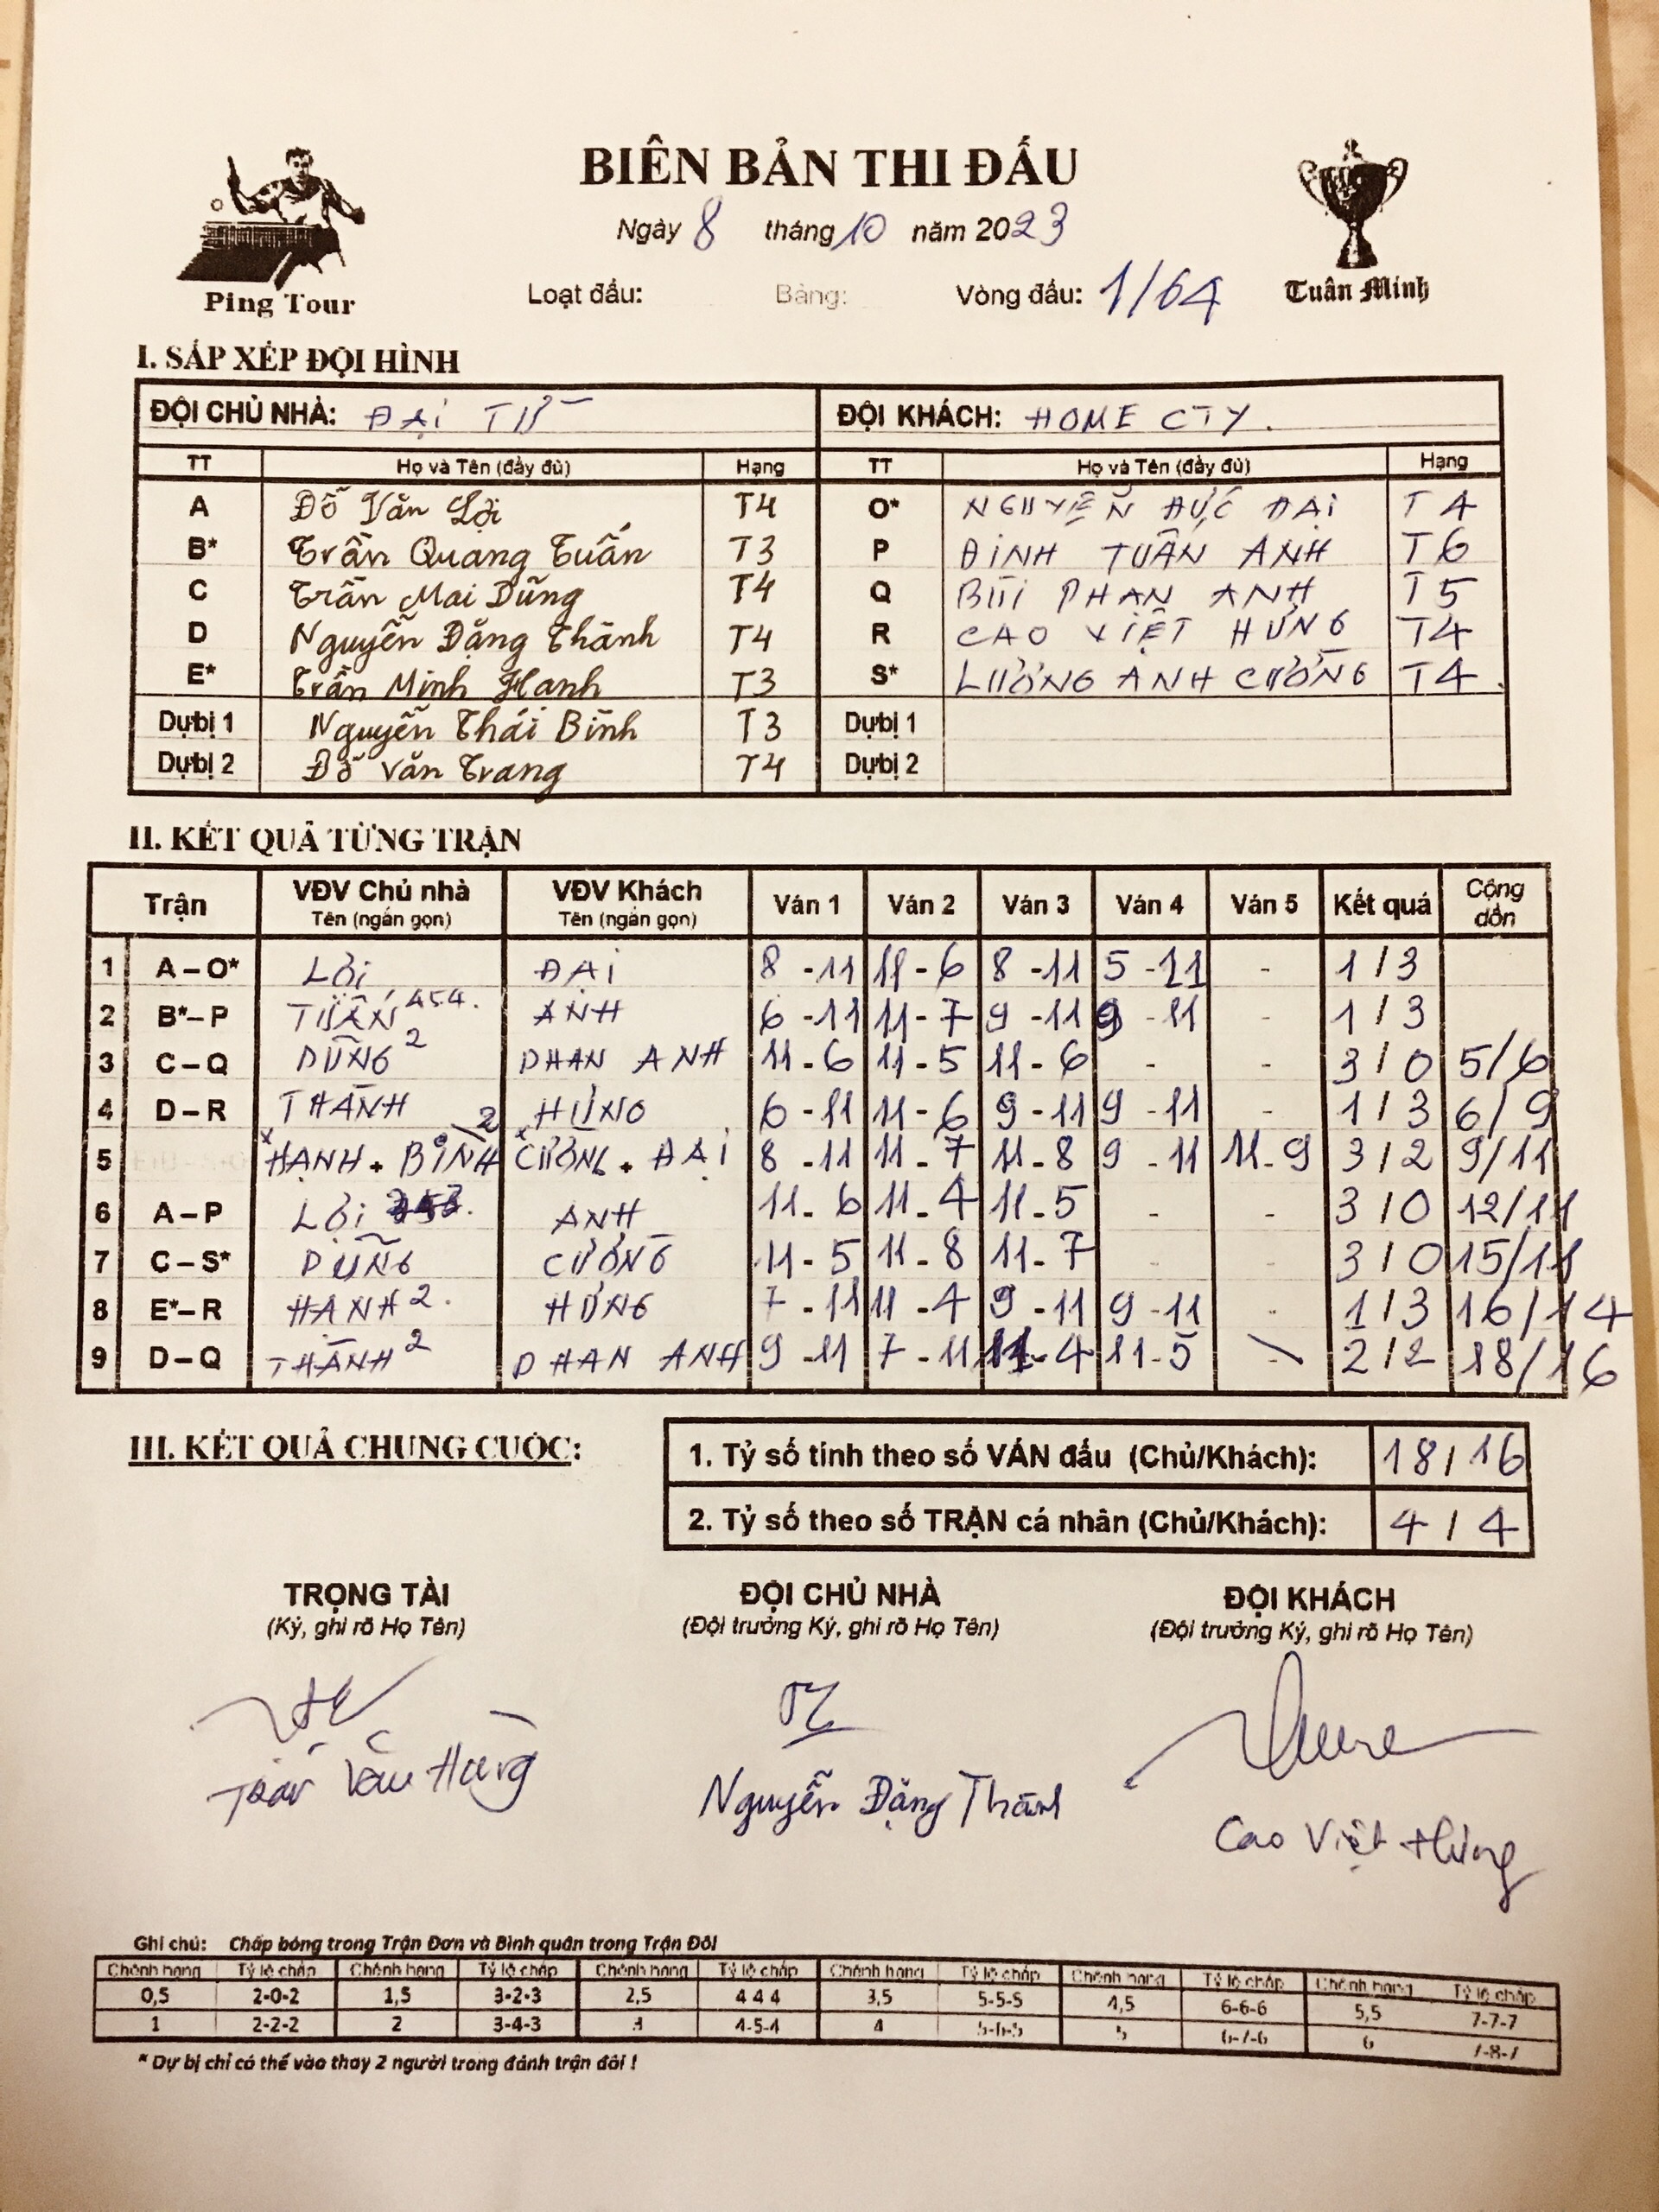 BIÊN BẢN THI ĐẤU
Ngày 8 tháng 10 năm 2023
Ping Tour
Loạt đấu: Bảng: Vòng đấu: 1/64
Tuấn Minh
I. SẮP XẾP ĐỘI HÌNH
ĐỘI CHỦ NHÀ: ĐẠI TỪ ĐỘI KHÁCH: HOME CTY.
TT Họ và Tên (đầy đủ) Hạng TT Họ và Tên (đầy đủ) Hạng
A Đỗ Văn Lợi T4 O* NGUYỄN ĐỨC ĐẠI T4
B* Trần Quang Tuấn T3 P ĐINH TUẤN ANH T6
C Trần Mai Dũng T4 Q BÙI PHAN ANH T5
D Nguyễn Đặng Thành T4 R CAO VIỆT HÙNG T4
E* Trần Minh Hạnh T3 S* LƯƠNG ANH CƯỜNG T4.
Dự bị 1 Nguyễn Thái Bình T3 Dự bị 1
Dự bị 2 Đỗ Văn Trang T4 Dự bị 2
II. KẾT QUẢ TỪNG TRẬN
Trận VĐV Chủ nhà Tên (ngắn gọn) VĐV Khách Tên (ngắn gọn) Ván 1 Ván 2 Ván 3 Ván 4 Ván 5 Kết quả Cộng dồn
1 A – O* LỢI ĐẠI 8 - 11 11 - 6 8 - 11 5 - 11 - 1 / 3
2 B* – P TUẤN 454. ANH 6 - 11 11 - 7 9 - 11 9 - 11 - 1 / 3
3 C – Q DŨNG 2 PHAN ANH 11 - 6 11 - 5 11 - 6 - - 3 / 0 5/6
4 D – R THÀNH HÙNG 6 - 11 11 - 6 9 - 11 9 - 11 - 1 / 3 6/9
5 HẠNH + BÌNH 2 CƯỜNG + ĐẠI 8 - 11 11 - 7 11 - 8 9 - 11 11 - 9 3 / 2 9/11
6 A – P LỢI ANH 11 - 6 11 - 4 11 - 5 - - 3 / 0 12/11
7 C – S* DŨNG CƯỜNG 11 - 5 11 - 8 11 - 7 - - 3 / 0 15/11
8 E* – R HẠNH 2. HÙNG 7 - 11 11 - 4 9 - 11 9 - 11 - 1 / 3 16/14
9 D – Q THÀNH 2 PHAN ANH 9 - 11 7 - 11 11 - 4 11 - 5 - 2 / 2 18/16
III. KẾT QUẢ CHUNG CUỘC:
1. Tỷ số tính theo số VÁN đấu (Chủ/Khách): 18 / 16
2. Tỷ số theo số TRẬN cá nhân (Chủ/Khách): 4 / 4
TRỌNG TÀI ĐỘI CHỦ NHÀ ĐỘI KHÁCH
(Ký, ghi rõ Họ Tên) (Đội trưởng Ký, ghi rõ Họ Tên) (Đội trưởng Ký, ghi rõ Họ Tên)
Văn Hùng
Nguyễn Đặng Thành
Cao Việt Hùng
Ghi chú: Chấp bóng trong Trận Đơn và Bình quân trong Trận Đôi
Chênh hạng Tỷ lệ chấp Chênh hạng Tỷ lệ chấp Chênh hạng Tỷ lệ chấp Chênh hạng Tỷ lệ chấp Chênh hạng Tỷ lệ chấp Chênh hạng Tỷ lệ chấp
0,5 2-0-2 1,5 3-2-3 2,5 4 4 4 3,5 5-5-5 4,5 6-6-6 5,5 7-7-7
1 2-2-2 2 3-4-3 3 4-5-4 4 5-6-5 5 6-7-6 6 7-8-7
* Dự bị chỉ có thể vào thay 2 người trong đánh trận đôi !